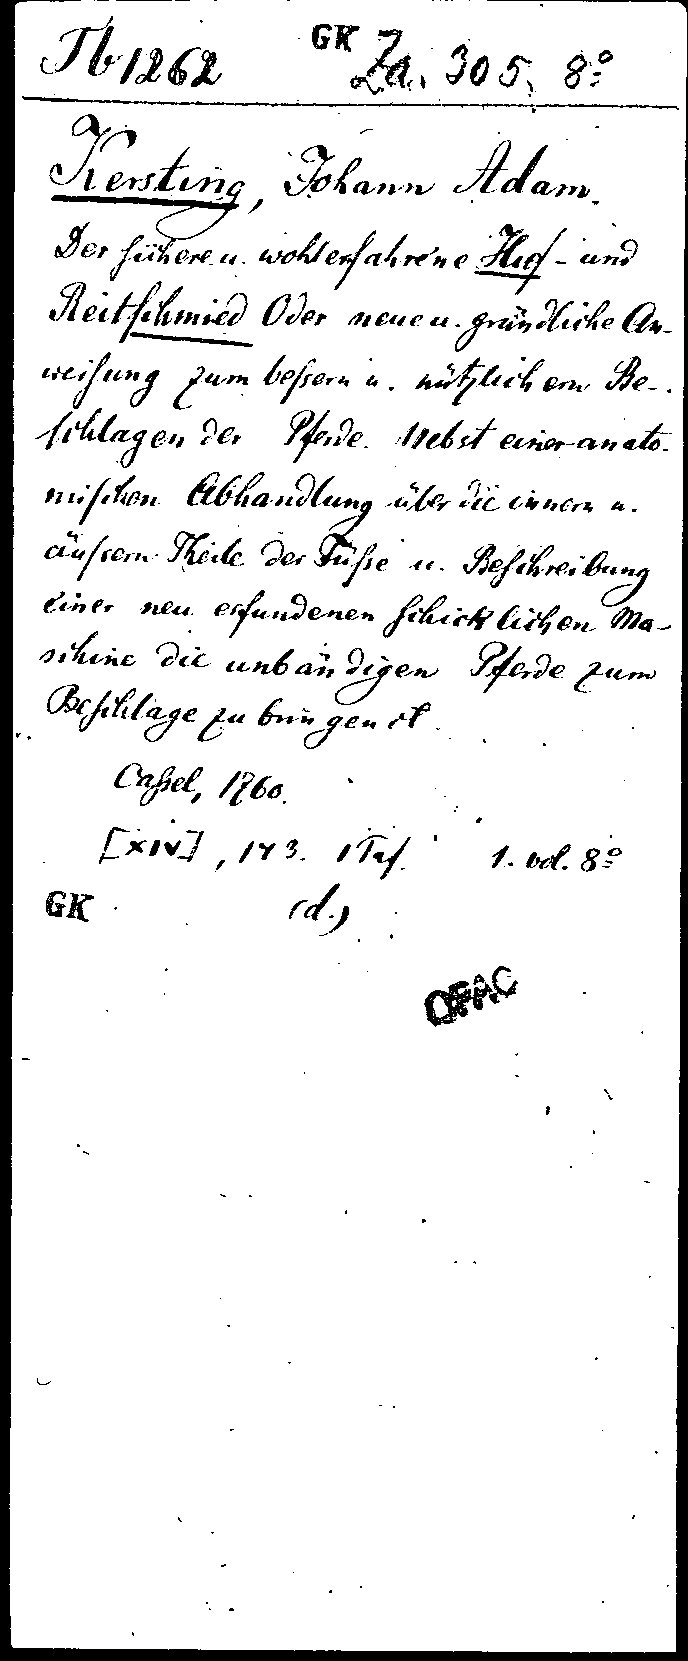 Tb 1262 GK Za. 305. 8º
Kersting, Johann Adam.
Der sichere u. wohlerfahrene Huf- und
Reitschmied Oder neue u. gründliche An-
weisung zum bessern u. nützlichern Be-
schlagen der Pferde. Nebst einer anato-
mischen Abhandlung über die innern u.
äussern Theile der Füsse u. Beschreibung
einer neu erfundenen schicklichen Ma-
schine die unbändigen Pferde zum
Beschlage zu bringen etc.
Cassel, 1760.
[XIV], 143. 1 Taf. 1. vol. 8º
GK (d.)
OPAC